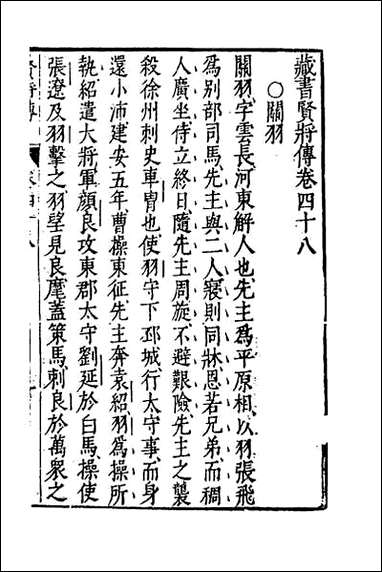 藏書賢將傳卷四十八
○關羽
關羽字雲長河東解人也先主爲平原相以羽張飛
爲别部司馬先主與二人寢則同牀恩若兄弟而稠
人廣坐侍立終日隨先主周旋不避艱險先主之襲
殺徐州刺史車胄也使羽守下邳城行太守事而身
還小沛建安五年曹操東征先主奔袁紹羽爲操所
執紹遣大將軍顔良攻東郡太守劉延於白馬操使
張遼及羽擊之羽望見良麾蓋策馬刺良於萬衆之